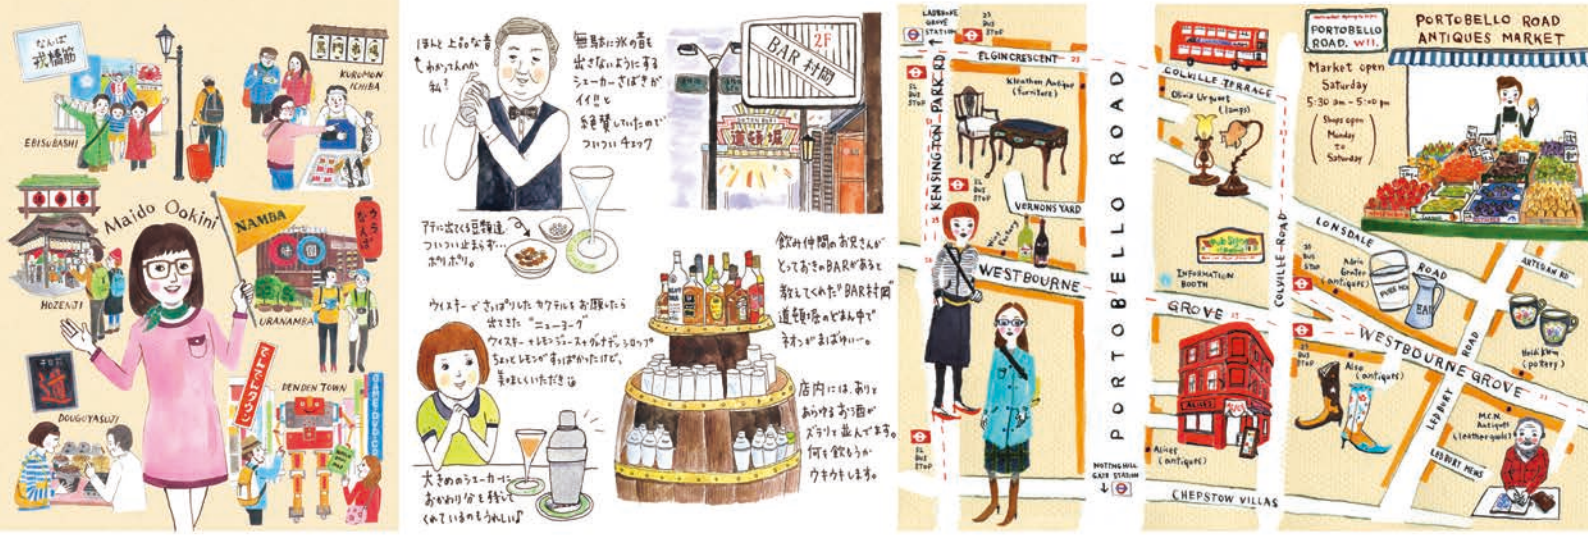 なんば
戎橋筋
EBISUBASHI
KUROMON
ICHIBA
Maido Ookini
NAMBA
HOZENJI
URANAMBA
うらなんば
道
DOUGUYASUJI
でんでんタウン
DENDEN TOWN
ほんと上品な音
もわからへんのか
私?
無駄に氷の音を
出さないようにする
シェーカーさばきが
イイ!!と
絶賛していたので
ついついチェック
2F
BAR 村岡
道頓堀
アテに出てくる豆類達
ついつい止まらず…
ポリポリ。
ウイスキーでさっぱりしたカクテルをお願いしたら
出てきた"ニューヨーク"
ウイスキー+レモンジュース+グレナデンシロップ
ちょっとレモンがすっぱかったけど、
美味しくいただき
大きめのシェーカーに
おかわり分を残して
くれているのもうれしい♪
飲み仲間のお兄さんが
とっておきのBARがあると
教えてくれた"BAR村岡"
道頓堀のどまん中で
ネオンがまばゆい〜。
店内には、ありと
あらゆるお酒が
ズラリと並んでます。
何を飲もうか
ウキウキします。
LADBROKE
GROVE
STATION
52
BUS
STOP
ELGIN CRESCENT
23
52
BUS
STOP
KENSINGTON PARK RD
Kleathan Antique
(furniture)
52
BUS
STOP
VERNONS YARD
Wine
Factory
WESTBOURNE
52
BUS
STOP
PORTOBELLO ROAD
NOTTING HILL
GATE STATION
COLVILLE TERRACE
Olivia Urquent
(lamps)
COLVILLE ROAD
INFORMATION
BOOTH
GROVE
ALICE'S
Alices
(antiques)
CHEPSTOW VILLAS
PORTOBELLO
ROAD. W11.
PORTOBELLO ROAD
ANTIQUES MARKET
Market open
Saturday
5:30 am - 5:00 pm
(Shops open
Monday
to
Saturday)
LONSDALE
ROAD
ARTESIAN RD
BUS
STOP
(antiques)
WESTBOURNE GROVE
BUS
STOP
Also
(antiques)
LEDBURY
ROAD
Heidi Klein
(pottery)
M.C.N.
Antiques
(leather goods)
LEDBURY MEWS